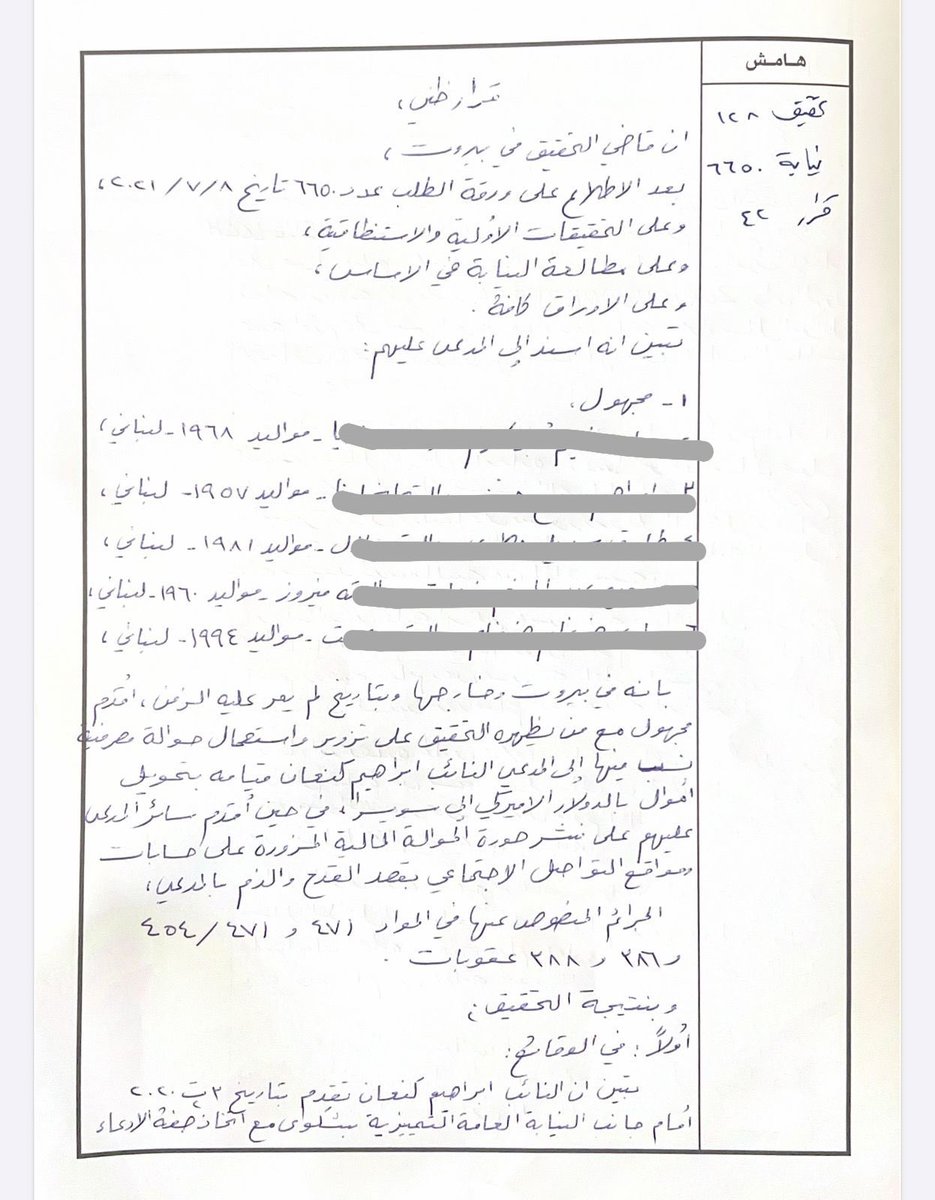 هامش
تحقيق ١٢٨
نيابة ٦٦٥٠
قرار ٤٢
قرار ظني،
ان قاضي التحقيق في بيروت،
بعد الاطلاع على ورقة الطلب عدد ٦٦٥٠ تاريخ ٢٠٢١/٧/٨،
وعلى التحقيقات الأولية والاستنطاقية،
وعلى مطالعة النيابة في الاساس،
وعلى الاوراق كافة.
تبين انه اسند إلى المدعى عليهم:
١- مجهول،
- مواليد ١٩٦٨ - لبناني،
- مواليد ١٩٥٧ - لبناني،
- مواليد ١٩٨١ - لبناني،
فيروز - مواليد ١٩٦٠ - لبناني،
- مواليد ١٩٩٤ - لبناني،
بانه في بيروت وخارجها وبتاريخ لم يمر عليه الزمن، أقدم
مجهول مع من يظهره التحقيق على تزوير واستعمال حوالة مصرفية
نسب فيها إلى المدعي النائب ابراهيم كنعان قيامه بتحويل
أموال بالدولار الاميركي إلى سويسرا، في حين أقدم سائر المدعى
عليهم على نشر صورة الحوالة المالية المزورة على حسابات
ومواقع التواصل الاجتماعي بقصد القدح والذم بالمدعي،
الجرائم المنصوص عنها في المواد ٤٧١ و ٤٥٤/٤٧١
و ٣٨٦ و ٣٨٨ عقوبات.
وبنتيجة التحقيق:
أولاً: في الوقائع:
تبين ان النائب ابراهيم كنعان تقدم بتاريخ ٣ ت٢ ٢٠٢٠
أمام جانب النيابة العامة التمييزية بشكوى مع اتخاذ صفة الادعاء